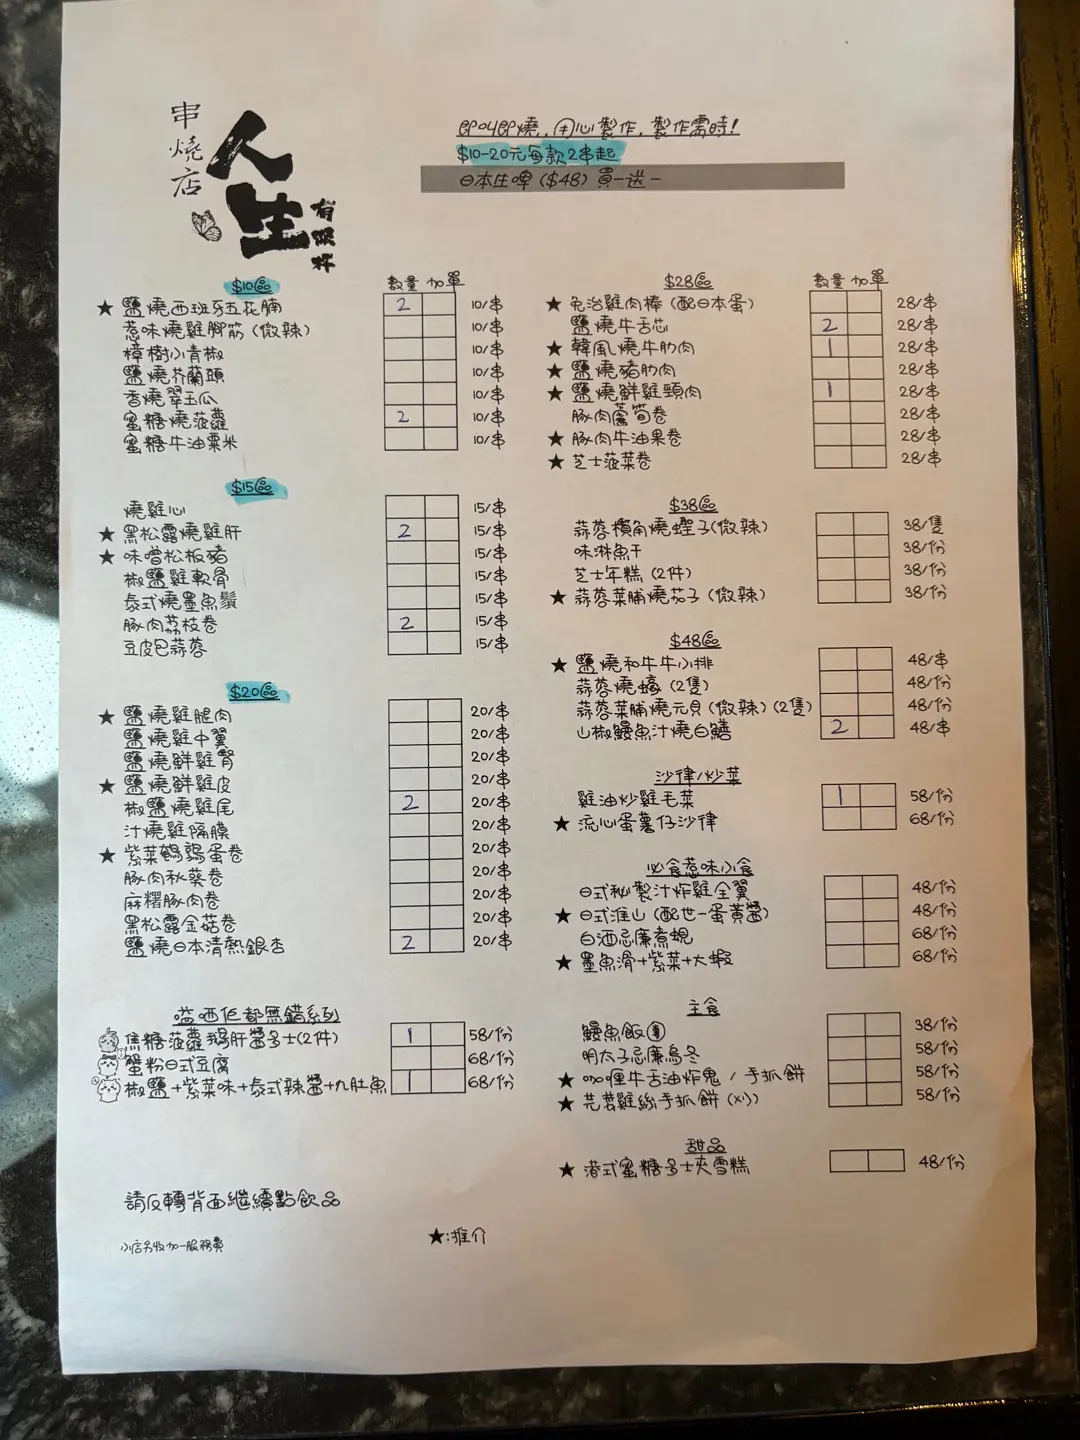 串燒店
人生
有幾杯
即叫即燒,用心製作,製作需時!
$10-20元每款2串起
日本生啤($48)買一送一
$10區 數量 加單
★ 鹽燒西班牙五花腩 2 10/串
惹味燒雞腳筋(微辣) 10/串
樟樹小青椒 10/串
鹽燒芥蘭頭 10/串
香燒翠玉瓜 10/串
蜜糖燒菠蘿 2 10/串
蜜糖牛油粟米 10/串
$15區
燒雞心 15/串
★ 黑松露燒雞肝 2 15/串
★ 味噌松板豬 15/串
椒鹽雞軟骨 15/串
泰式燒墨魚鬚 15/串
豚肉荔枝卷 2 15/串
豆皮巴蒜蓉 15/串
$20區
★ 鹽燒雞腿肉 20/串
鹽燒雞中翼 20/串
鹽燒鮮雞腎 20/串
★ 鹽燒鮮雞皮 20/串
椒鹽燒雞尾 2 20/串
汁燒雞隔膜 20/串
★ 紫菜鵪鶉蛋卷 20/串
豚肉秋葵卷 20/串
麻糬豚肉卷 20/串
黑松露金菇卷 20/串
鹽燒日本清熱銀杏 2 20/串
嗌哂佢都無錯系列
焦糖菠蘿鵝肝醬多士(2件) 1 58/份
蟹粉日式豆腐 68/份
椒鹽+紫菜味+泰式辣醬+九肚魚 1 68/份
請反轉背面繼續點飲品
小店另收加一服務費
★:推介
$28區 數量 加單
★ 免治雞肉棒(配日本蛋) 28/串
鹽燒牛舌芯 2 28/串
★ 韓風燒牛肋肉 1 28/串
★ 鹽燒豬肋肉 28/串
★ 鹽燒鮮雞頸肉 1 28/串
豚肉蘆筍卷 28/串
★ 豚肉牛油果卷 28/串
★ 芝士菠菜卷 28/串
$38區
蒜蓉欖角燒蟶子(微辣) 38/隻
味淋魚干 38/份
芝士年糕(2件) 38/份
★ 蒜蓉菜脯燒茄子(微辣) 38/份
$48區
★ 鹽燒和牛牛小排 48/串
蒜蓉燒蠔(2隻) 48/份
蒜蓉菜脯燒元貝(微辣)(2隻) 48/份
山椒鰻魚汁燒白鱔 2 48/串
沙律/炒菜
雞油炒雞毛菜 1 58/份
★ 流心蛋薯仔沙律 68/份
必食惹味小食
日式秘製汁炸雞全翼 48/份
★ 日式淮山(配世一蛋黃醬) 48/份
白酒忌廉煮蜆 68/份
★ 墨魚滑+紫菜+大蝦 68/份
主食
鰻魚飯 38/份
明太子忌廉烏冬 58/份
★ 咖喱牛舌油炸鬼 / 手抓餅 58/份
★ 芫荽雞絲手抓餅(凍) 58/份
甜品
★ 港式蜜糖多士夾雪糕 48/份